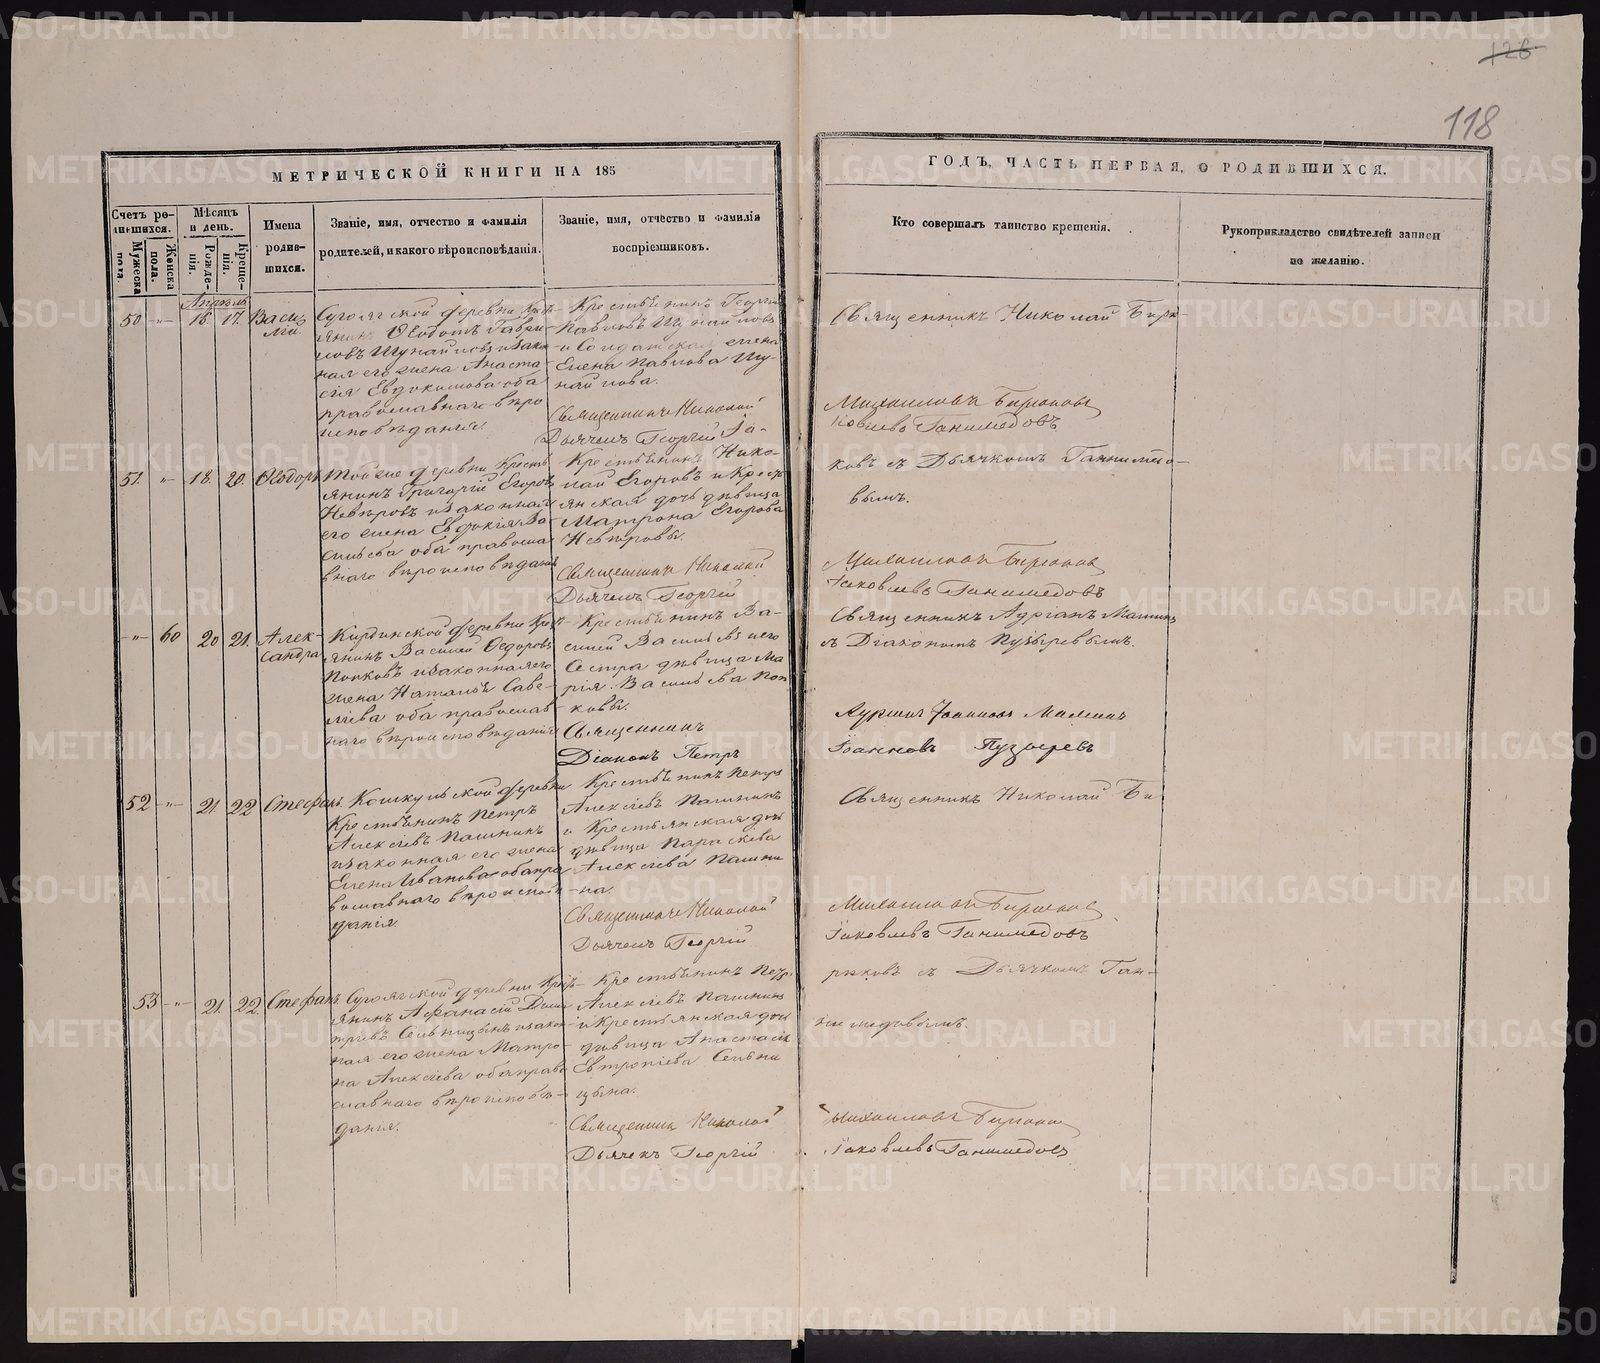 118
МЕТРИЧЕСКОЙ КНИГИ НА 185
ГОДЪ, ЧАСТЬ ПЕРВАЯ, О РОДИВШИХСЯ.
Счетъ родившихся.
Мужеска пола.
Женска пола.
Мѣсяцъ и день.
Рожденія.
Крещенія.
Имена родившихся.
Званіе, имя, отчество и фамилія
родителей, и какого вѣроисповѣданія.
Званіе, имя, отчество и фамилія
воспріемниковъ.
Кто совершалъ таинство крещенія.
Рукоприкладство свидѣтелей записи
по желанію.
Апрѣль
50 -"- 16. 17. Васи-
лій.
деревни
янинъ Ѳедотъ Гаври-
ловъ и закон-
ная его жена Анаста-
сія Евдокимова оба
православнаго вѣро
исповѣданія.
Крестьянинъ Георгій
Павловъ
и Солдатская жена
Елена Павлова
Священникъ Николай
Дьячекъ Георгій
Священникъ Николай Бирю-
Михайловъ Бирюковъ
Ганимедовъ
51. " 18. 20. Ѳеодоръ
Той же деревни Кресть
янинъ Григорій Егоровъ
Невѣровъ и законная
его жена Евдокія Ва
сильева оба правосла
внаго вѣроисповѣданія
Крестьянинъ Нико-
лай Егоровъ и Кресть
янская дочь дѣвица
Матрона Егорова
Невѣровы.
Священникъ Николай
Дьячекъ Георгій
ковъ съ Дьячкомъ Ганимедо-
вымъ.
Михайловъ Бирюковъ
Іаковлевъ Ганимедовъ
-"- 60 20 21. Алек-
сандра
деревни
янинъ Василій Ѳедоровъ
Попковъ и законная его
жена Наталья Саве-
льева оба православ-
наго вѣроисповѣданія
Крестьянинъ Ва-
силій Васильевъ и его
Сестра дѣвица Ма
рія Васильева Поп
ковы.
Священникъ
Діаконъ Петръ
Священникъ Адріанъ
съ Діакономъ Пузыревымъ.
Іоанновъ Пузыревъ
52 -"- 21. 22 Стефанъ.
деревни
Крестьянинъ Петръ
Алексѣевъ Пашнинъ
и законная его жена
Елена Иванова оба пра
вославнаго вѣроисповѣ
данія.
Крестьянинъ Петръ
Алексѣевъ Пашнинъ
и Крестьянская дочь
дѣвица Параскева
Алексѣева Пашни
-на.
Священникъ Николай
Дьячекъ Георгій
Священникъ Николай Би
Михайловъ Бирюковъ
Іаковлевъ Ганимедовъ
53 -"- 21. 22. Стефанъ.
деревни
янинъ Аѳанасій Дими
тріевъ и закон-
ная его жена Матро-
на Алексѣева оба право
славнаго вѣроисповѣ-
данія.
Крестьянинъ Петръ
Алексѣевъ Пашнинъ
и Крестьянская дочь
дѣвица Анастасія
Евтропіева
цына.
Священникъ Николай
Дьячекъ Георгій
рюковъ съ Дьячкомъ Ган-
имедовымъ.
Михайловъ Бирюковъ
Іаковлевъ Ганимедовъ
METRIKI.GASO-URAL.RU